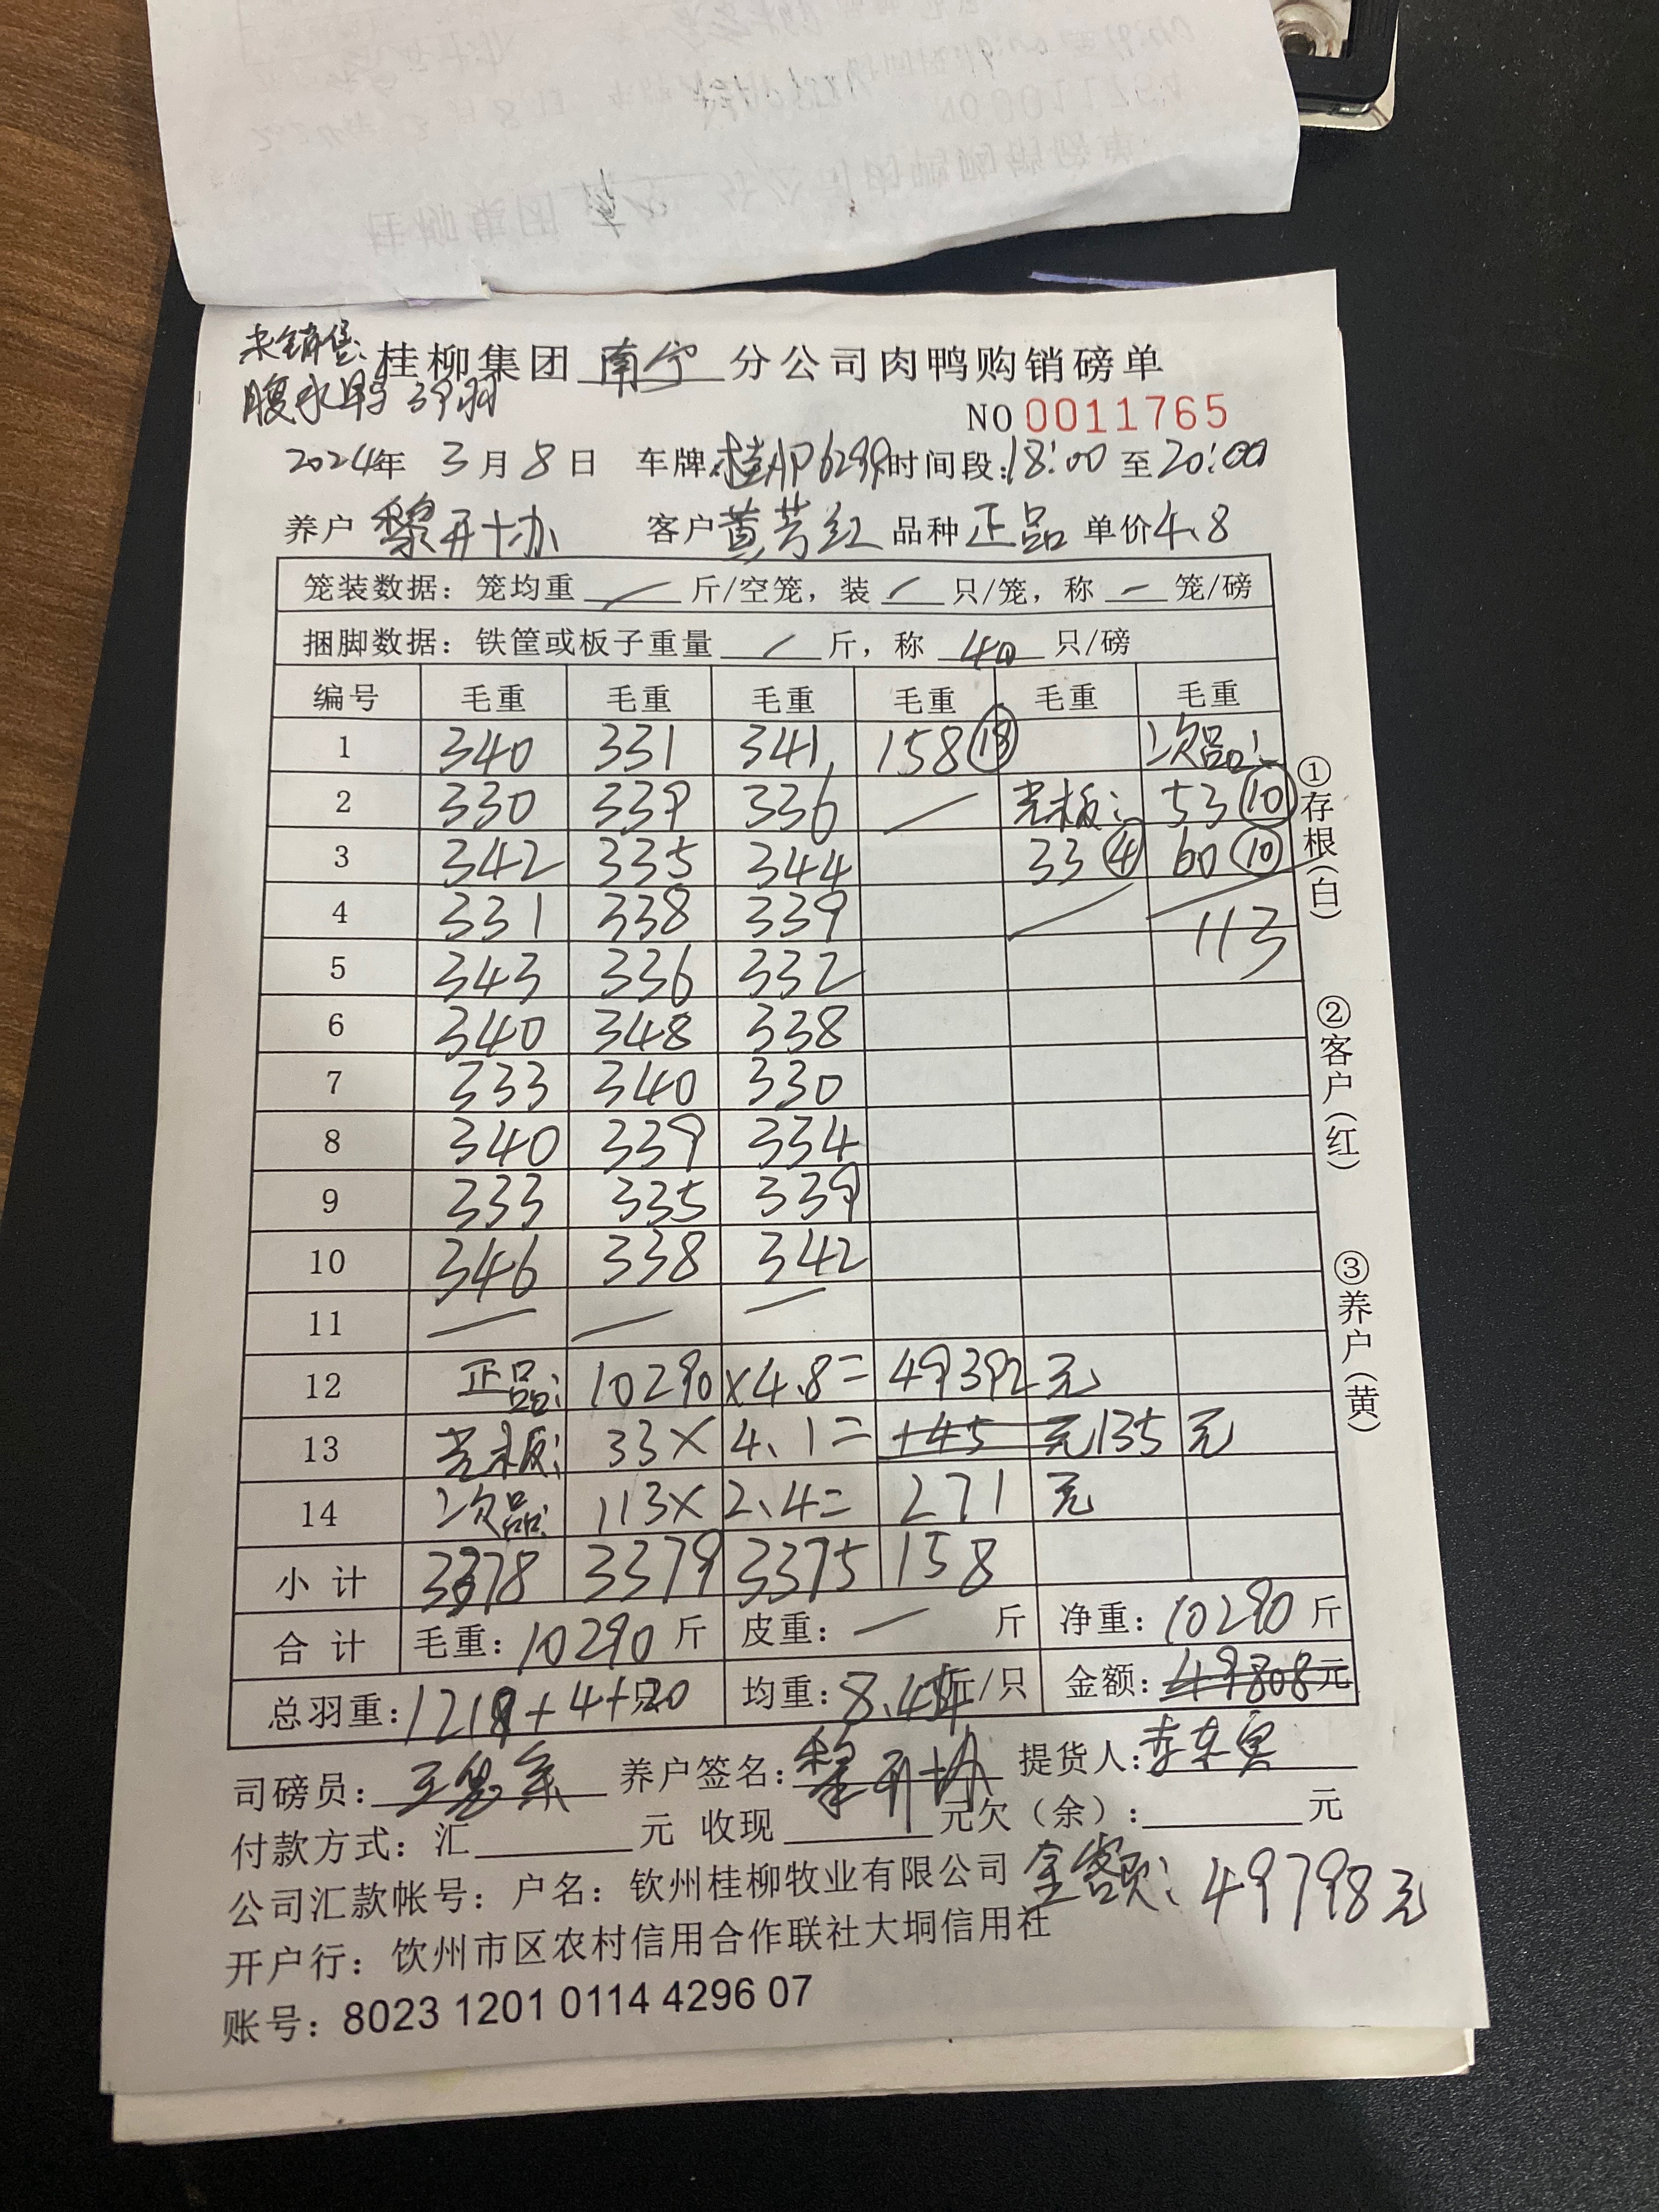 未销售:
腹水鸭
桂柳集团 南宁 分公司肉鸭购销磅单
NO 0011765
2024年 3月8日 车牌 时间段:18:00 至 20:00
养户 黎开协 客户 黄芳红 品种 正品 单价 4.8
笼装数据: 笼均重 / 斤/空笼, 装 / 只/笼, 称 — 笼/磅
捆脚数据: 铁筐或板子重量 / 斤, 称 40 只/磅
编号 毛重 毛重 毛重 毛重 毛重 毛重
1 340 331 341 158 次品:
2 330 339 336 / 光板: 53 ⑩
3 342 335 344 33 ④ 60 ⑩
4 331 338 339 113
5 343 336 332
6 340 348 338
7 333 340 330
8 340 339 334
9 333 335 339
10 346 338 342
11 — — —
12 正品: 10290 × 4.8 = 49392 元
13 光板: 33 × 4.1 = 145 元 135 元
14 次品: 113 × 2.4 = 271 元
小计 3378 3379 3375 158
合计 毛重: 10290 斤 皮重: — 斤 净重: 10290 斤
总羽重: 1218+4+20 只 均重: 8.45 斤/只 金额: 49808 元
司磅员: 养户签名: 黎开协 提货人:
付款方式: 汇 元 收现 元 欠(余): 元
公司汇款帐号: 户名: 钦州桂柳牧业有限公司 金额: 49798元
开户行: 钦州市区农村信用合作联社大垌信用社
账号: 8023 1201 0114 4296 07
①存根(白)
②客户(红)
③养户(黄)